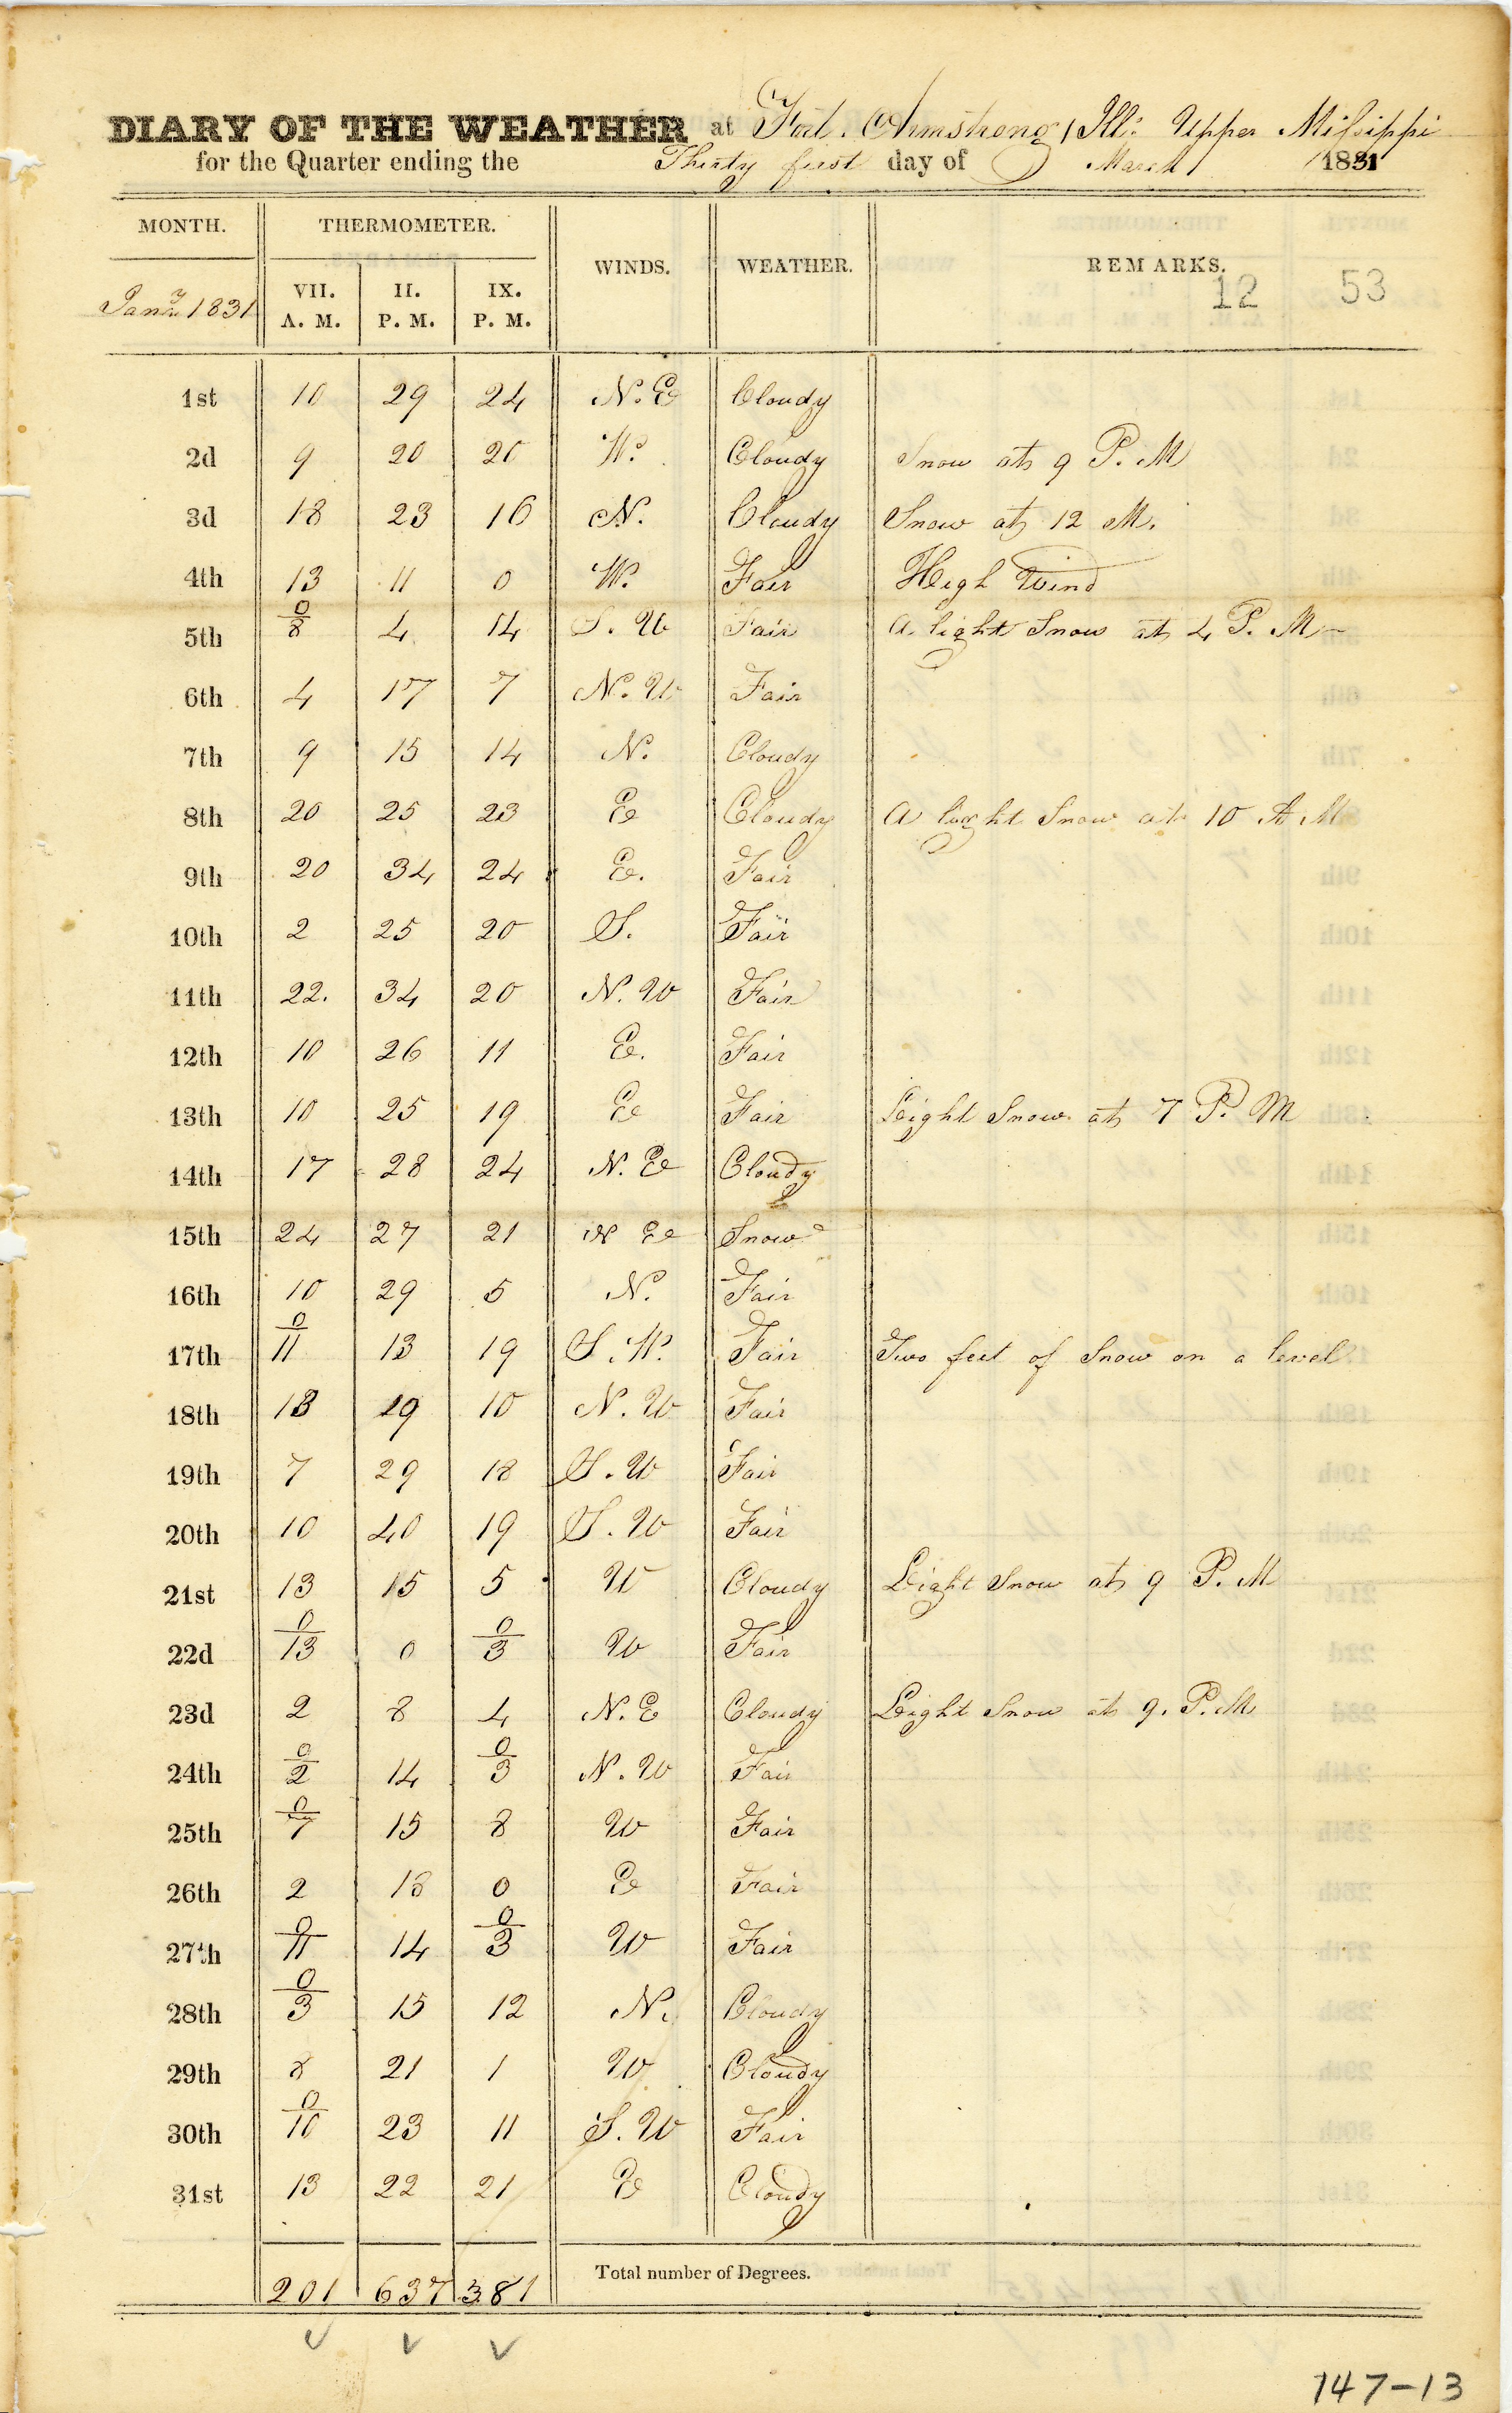 DIARY OF THE WEATHER at Fort. Armstrong, Ill: Upper Missippi
for the Quarter ending the Thirty first day of March 1831
MONTH. THERMOMETER. WINDS. WEATHER. REMARKS.
12 53
Jany 1831 VII. A. M. II. P. M. IX. P. M.
1st 10 29 24 N. E Cloudy
2d 9 20 20 W. Cloudy Snow at 9 P. M
3d 18 23 16 N. Cloudy Snow at 12 M.
4th 13 11 0 W. Fair High Wind
5th 0/8 4 14 S. W Fair A light Snow at 4 P. M
6th 4 17 7 N. W Fair
7th 9 15 14 N. Cloudy
8th 20 25 23 E Cloudy A light Snow at 10 A M
9th 20 34 24 E. Fair
10th 2 25 20 S. Fair
11th 22. 34 20 N. W Fair
12th 10 26 11 E. Fair
13th 10 25 19 E Fair Light Snow at 7 P. M
14th 17 28 24 N. E Cloudy
15th 24 27 21 N E Snow
16th 10 29 5 N. Fair
17th 0/11 13 19 S. W. Fair Two feet of Snow on a level
18th 13 19 10 N. W Fair
19th 7 29 18 S. W Fair
20th 10 40 19 S. W Fair
21st 13 15 5 W Cloudy Light Snow at 9 P. M
22d 0/13 0 0/3 W Fair
23d 2 8 4 N. E Cloudy Light Snow at 9. P. M
24th 0/2 14 0/3 N. W Fair
25th 0/7 15 8 W Fair
26th 2 18 0 E Fair
27th 0/11 14 0/3 W Fair
28th 0/3 15 12 N. Cloudy
29th 8 21 1 W Cloudy
30th 0/10 23 11 S. W Fair
31st 13 22 21 E Cloudy
201 637 381 Total number of Degrees.
147-13